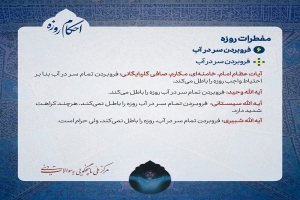 احکام روزه
مفطرات روزه
فروبردن سر در آب
فروبردن سر در آب
آیات عظام امام، خامنه‌ای، مکارم، صافی گلپایگانی: فروبردن تمام سر در آب بنا بر
احتیاط واجب روزه را باطل می‌کند.
آیه الله وحید: فروبردن تمام سر در آب روزه را باطل می‌کند.
آیه الله سیستانی: فروبردن تمام سر در آب روزه را باطل نمی‌کند، هرچند کراهت
شدید دارد.
آیه الله شبیری: فروبردن تمام سر در آب، روزه را باطل نمی‌کند، ولی حرام است.
مرکز ملی پاسخگویی به سوالات دینی